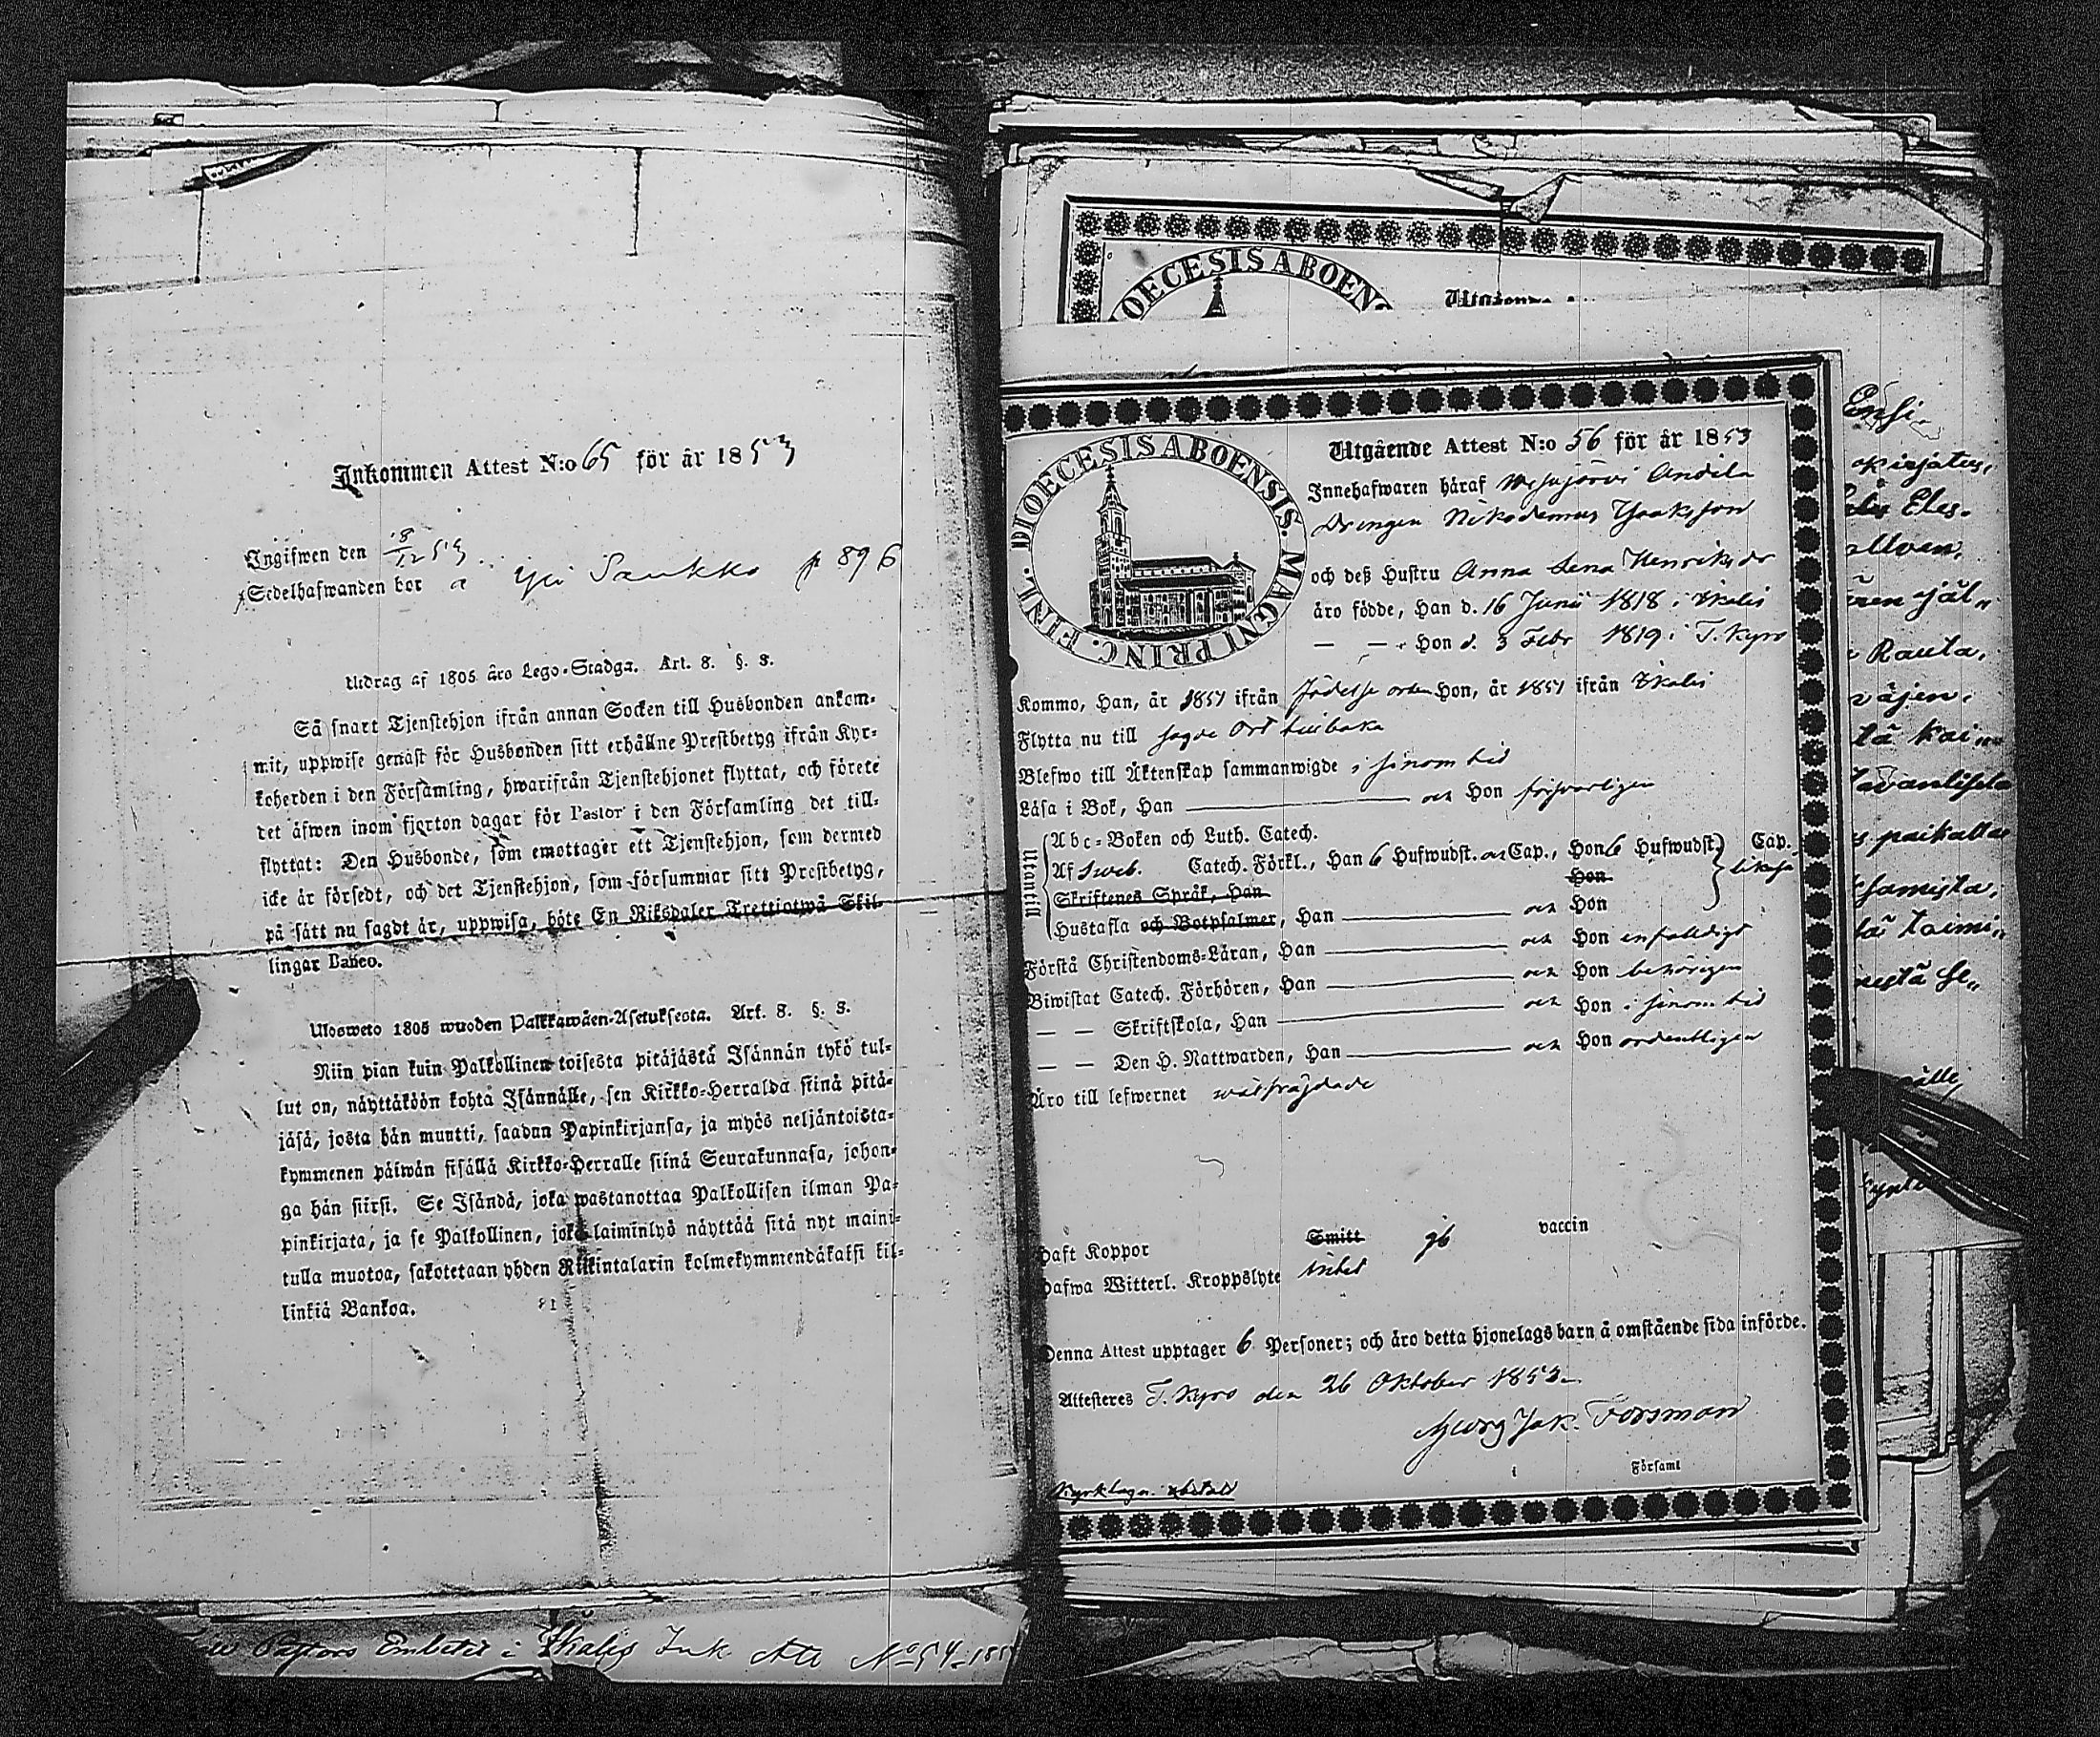 Inkommen Attest N:o 65 för år 1853
Ingifwen den 18/12 53.
Sedelhafwanden bor å Yli Saukko p 896
Utdrag af 1805 års Lego-Stadga. Art. 8. §. 8.
Så snart Tjenstehjon ifrån annan Socken till Husbonden ankom-
mit, uppwise genast för Husbonden sitt erhållne Prestbetyg ifrån Kyr-
koherden i den Församling, hwarifrån Tjenstehjonet flyttat, och förete
det äfwen inom fjorton dagar för Pastor i den Församling det till-
flyttat: Den Husbonde, som emottager ett Tjenstehjon, som dermed
icke är försedt, och det Tjenstehjon, som försummar sitt Prestbetyg,
på sätt nu sagdt är, uppwisa, böte En Riksdaler Trettiotwå Skil-
lingar Banco.
Ulosweto 1805 wuoden Palkkawäen-Asetuksesta. Art. 8. §. 8.
Niin pian kuin Palkollinen toisesta pitäjästä Isännän tykö tul-
lut on, näyttäköön kohta Isännälle, sen Kirkko-Herralda siinä pitä-
jäsä, josta hän muutti, saadun Papinkirjansa, ja myös neljäntoista-
kymmenen päiwän sisällä Kirkko-Herralle siinä Seurakunnasa, johon-
ga hän siirsi. Se Isändä, joka wastanottaa Palkollisen ilman Pa-
pinkirjata, ja se Palkollinen, joka laiminlyö näyttää sitä nyt maini-
tulla muotoa, sakotetaan yhden Riikintalarin kolmekymmendäkaksi kil-
linkiä Bankoa.
Pastors Embetet i Ikalis Ink Att No 54 185
DIOECESIS ABOENS
Utgående
DIOECESIS ABOENSIS. MAGNI PRINC. FINL.
Utgående Attest N:o 56 för år 1853
Innehafwaren häraf Wesajärvi Andila
Drängen Nikodemus Isaksson
och deß Hustru Anna Lena Henriksdr
äro födde, Han d. 16 Junii 1818 i Ikalis
— — Hon d. 3 Febr 1819 i T. Kyro
Kommo, Han, år 1851 ifrån födelse orten Hon, år 1851 ifrån Ikalis
Flytta nu till sagde Ort tillbaka
Blefwo till Äktenskap sammanwigde i sinom tid
Läsa i Bok, Han — och Hon försvarligen
Utantill
Abc-Boken och Luth. Catech.
Af Sweb. Catech. Förkl., Han 6 Hufwudst. och Cap., Hon 6 Hufwudst. Cap.
Skriftenes Språk, Han Hon likaså
Hustafla och Botpsalmer, Han — och Hon
Förstå Christendoms-Läran, Han — och Hon enfaldigt
Biwistat Catech. Förhören, Han — och Hon behörigen
— — Skriftskola, Han — och Hon i sinom tid
— — Den H. Nattwarden, Han — och Hon ordentligen
Äro till lefwernet wälfräjdade
Haft Koppor Smitt gb vaccin
Hafwa Witterl. Kroppslyte intet
Denna Attest upptager 6 Personer; och äro detta hjonelags barn å omstående sida införde.
Attesteres T. Kyro den 26 Oktober 1853
Georg Jak. Forsman
i Församl
Ensi
Eles.
Rauta,
tä kai
paikallae
samista,